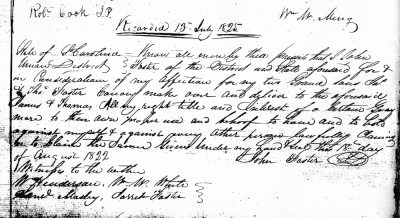 Robt Cook J.P. Wm W. Mercy
Recorded 13th July 1825
State of S Carolina - Know all men by these presents that I John
Union District Foster of the District and State aforesaid for &
in Consideration of my affection for my two Sons James
& Thos Foster make over and deliver to the aforesaid
James & Thomas All my right title and Interest of a Certain Gray
mare to their own proper use and behoof to have and to hold
against myself & against every other person lawfully Claiming
or to Claim the Same Given under my hand & Seal this 18th day
of August 1822 John Foster
Witnesses to the within
W Henderson, Wm W. White
Mabry, Jarret Foster